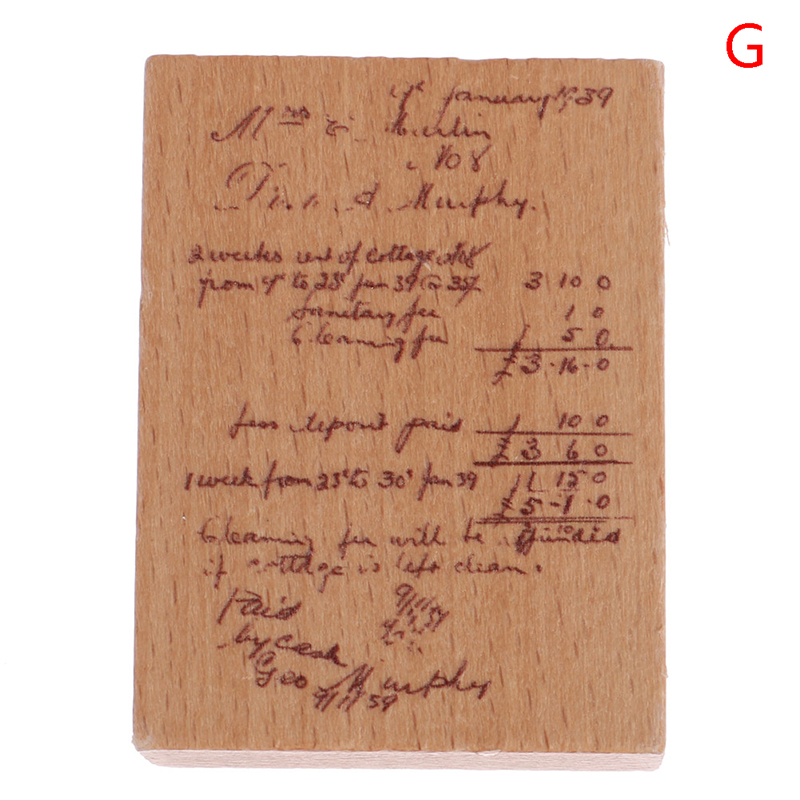 G
January 1939
Mrs
No8
A Murphy.
2 weeks rent of cottage No8
from 9th to 23rd Jan 39 @ 35/- 3 10 0
Sanitary fee 1 0
Cleaning fee 5 0
£3-16-0
less deposit paid 10 0
£3 6 0
1 week from 23rd to 30th Jan 39 1 15 0
£5-1-0
Cleaning fee will be
if cottage is left clean.
Paid
by cash
Geo Murphy